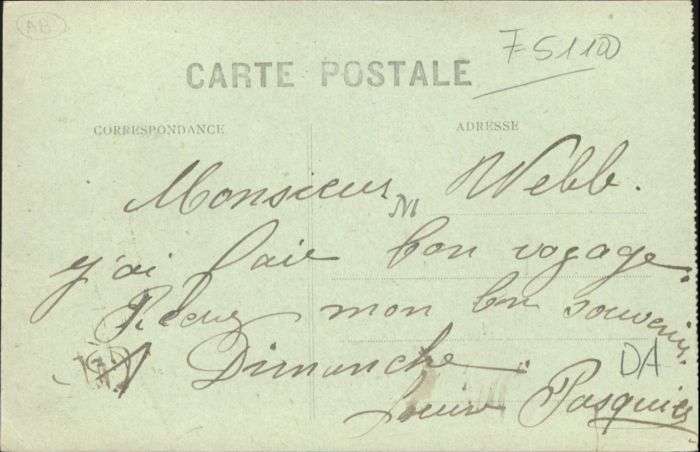 AB
F 51100
CARTE POSTALE
CORRESPONDANCE
ADRESSE
Monsieur Webb.
j'ai fait bon voyage.
Recevez mon bon souvenir.
A Dimanche.
DA
Louise Pasquier